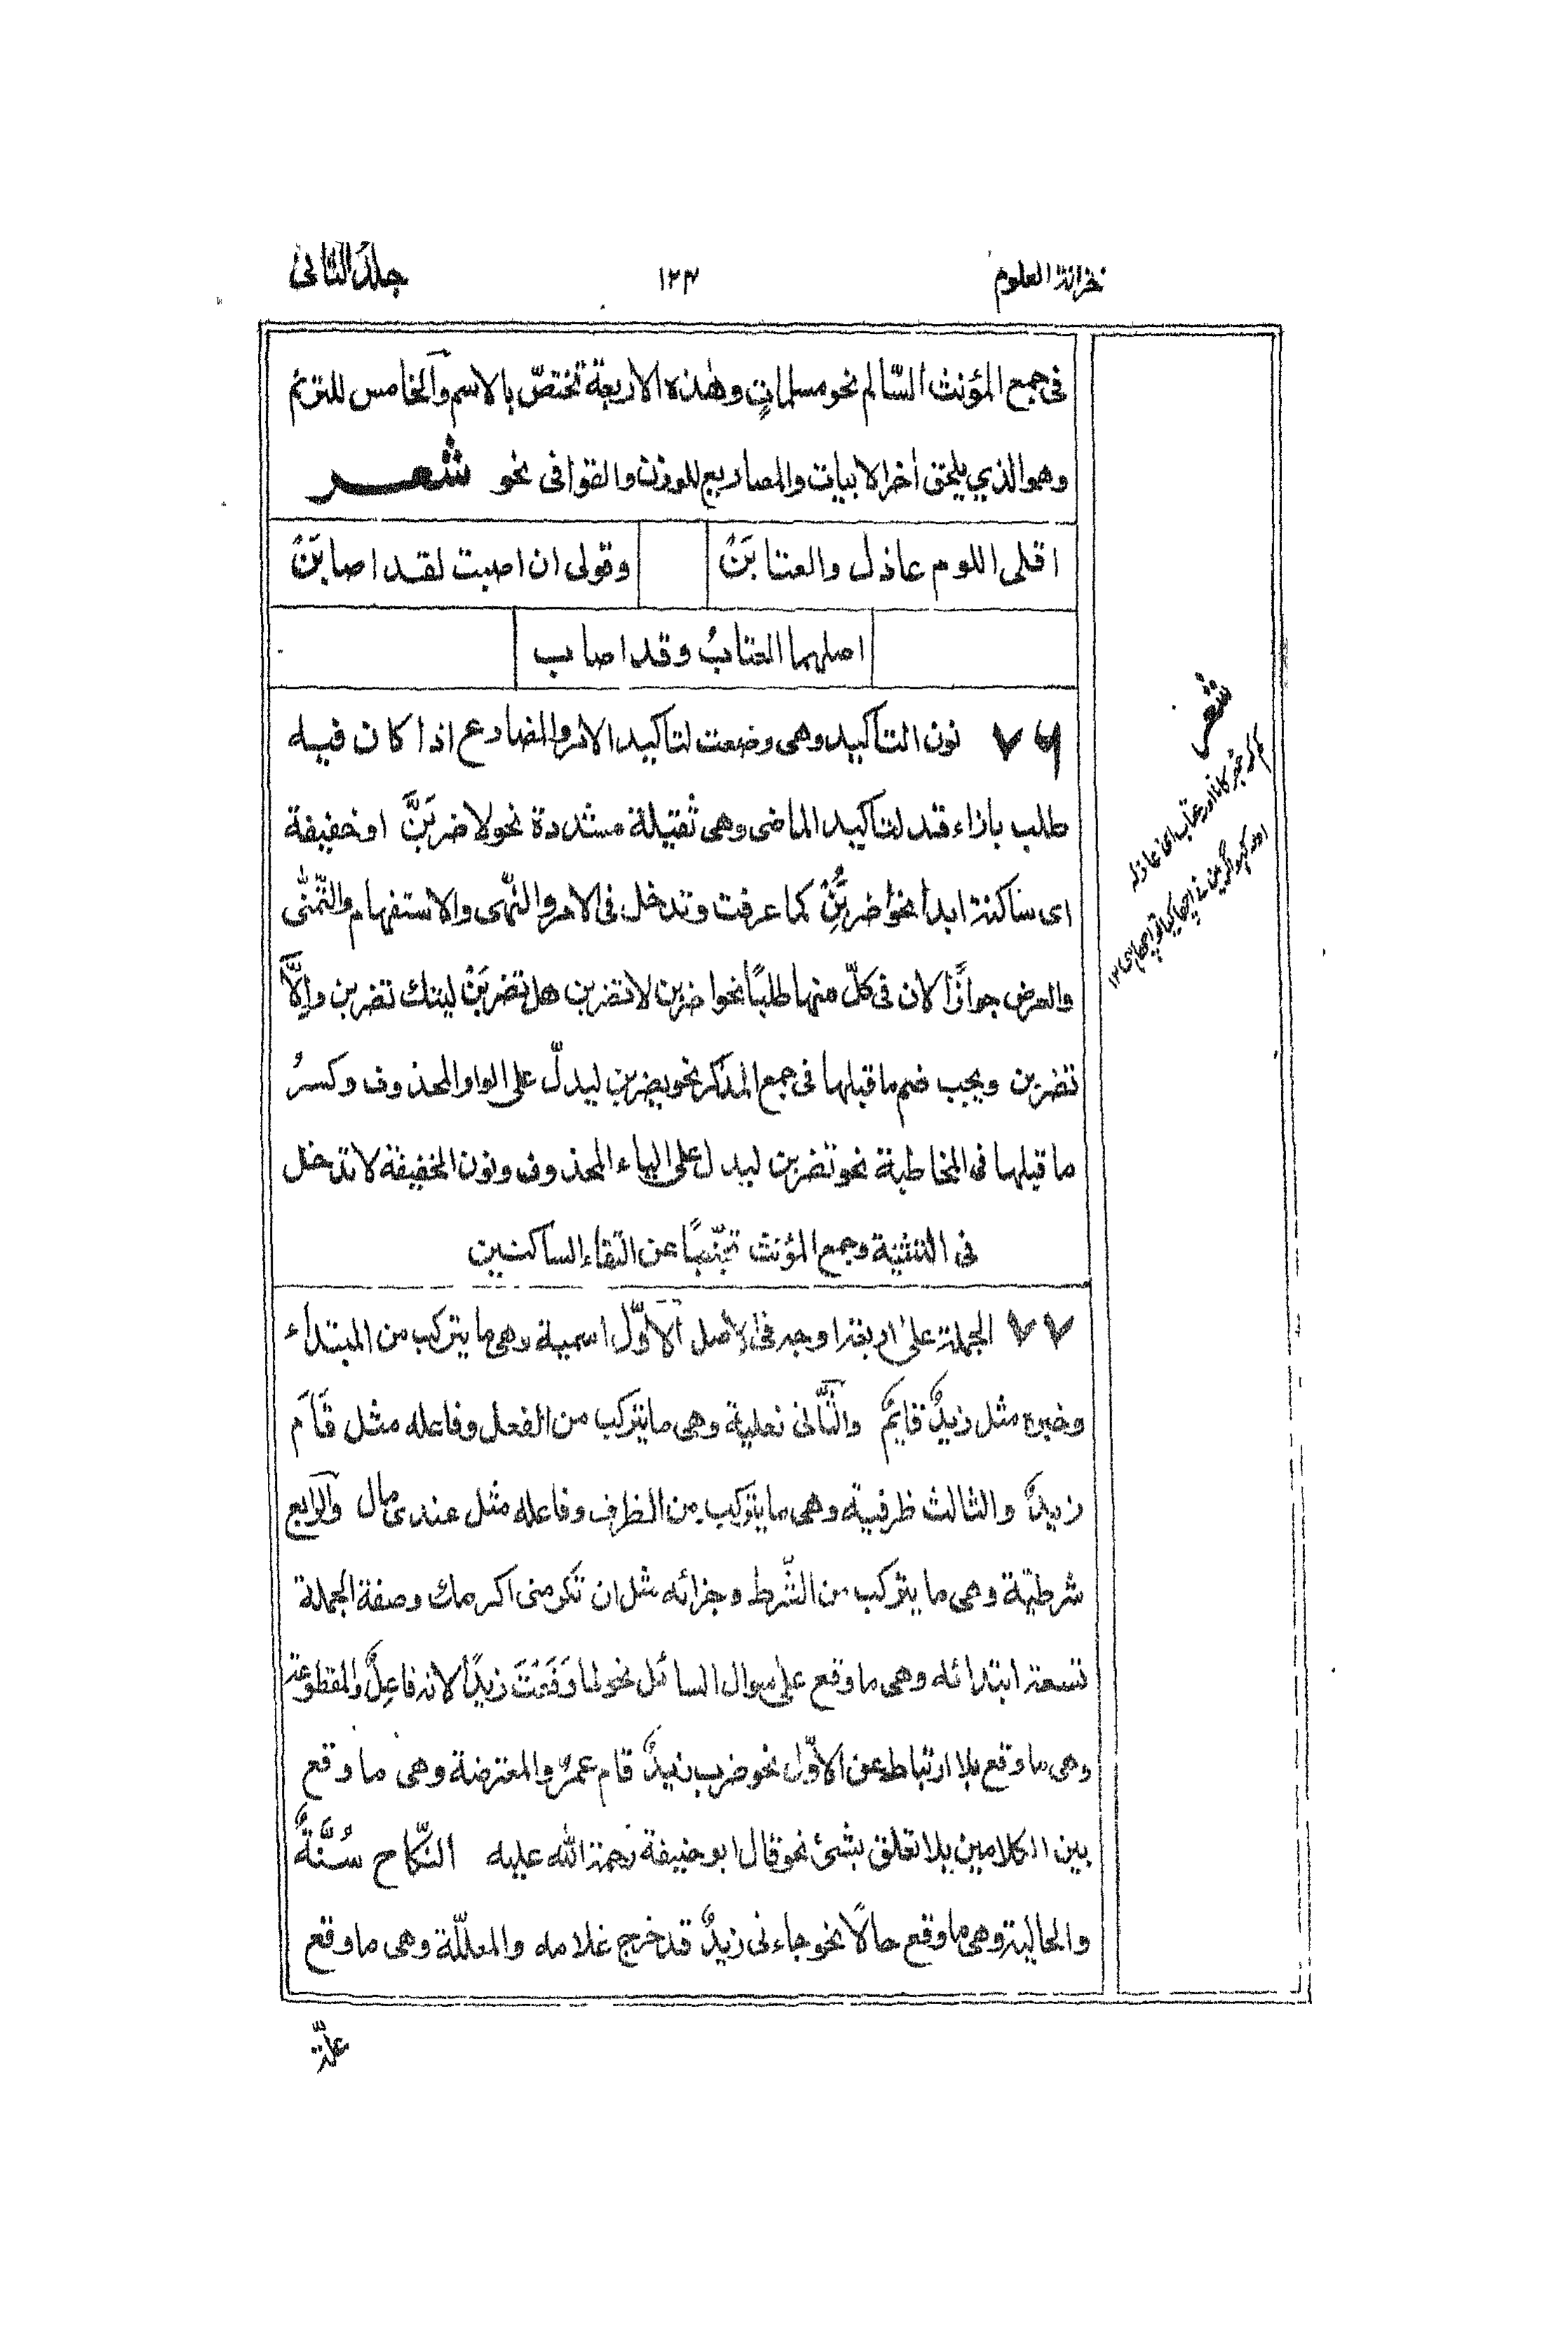 خزانة العلوم
١٢٣
جلد الثانى
فى جمع المؤنث السّالم نحو مسلماتٍ وهٰذه الاربعة تختصّ بالاسم والخامس للترنم
وهو الذي يلحق اٰخر الابيات والمصاريع للوزن والقوافى نحو شعر
اقلى اللوم عاذل والعتابَنْ
وقولى ان اصبت لقد اصابَنْ
اصلهما العتابُ وقد اصاب
٧٦ نون التاكيد وهى وضعت لتاكيد الامر والمضارع اذا كان فيه
طلب بازاء قد لتاكيد الماضى وهى ثقيلة مشددة نحو لاضربَنَّ اوخفيفة
اى ساكنة ابدا نحو اضربُنْ كما عرفت وتدخل فى الامر والنّهى والاستفهام والتّمنّى
والعرض جوازًا لان فى كلّ منها طلبًا نحو اضربن لا تضربن هل تضربَنْ ليتك تضربن واِلَّا
تضربن ويجب ضم ما قبلها فى جمع المذكر نحو يضربن ليدلّ على الواو المحذوف وكسرُ
ما قبلها فى المخاطبة نحو تضربن ليدل على الياء المحذوف ونون الخفيفة لا تدخل
فى التثنية وجمع المؤنث تجنّبًا عن التقاء الساكنين
٧٧ الجملة علىٰ اربعة اوجه فى الاصل الاوّل اسمية وهى ما يتركب من المبتداء
وخبره مثل زيدٌ قايمٌ والثّانى فعلية وهى ما يتركب من الفعل وفاعله مثل قَامَ
زيدٌ والثالث ظرفية وهى ما يتركب من الظرف وفاعله مثل عندى مال والرابع
شرطيّة وهى ما يتركب من الشّرط وجزائه مثل ان تكرمنى اكرمك وصفة الجملة
تسعة ابتدائه وهى ما وقع على سوال السائل نحو لما وَقَعْتَ زيدًا لانه فاعِلٌ والمقطوعة
وهى ما وقع بلا ارتباط عن الاوّل نحو ضرب زيدٌ قام عمرٌو والمعترضة وهى ما وقع
بين الكلامين بلا تعلق بشئ نحو قال ابو حنيفة رحمة الله عليه النّكاح سُنَّةٌ
والحالية وهى ما وقع حالًا نحو جاءنى زيدٌ قد خرج غلامه والمعلّلة وهى ما وقع
علّة
شعر
كم كر جھڑكنا اور عتاب اى عاذله
اور كہو اگر مين نے اچھا كيا تو اچھا ہى ١٢